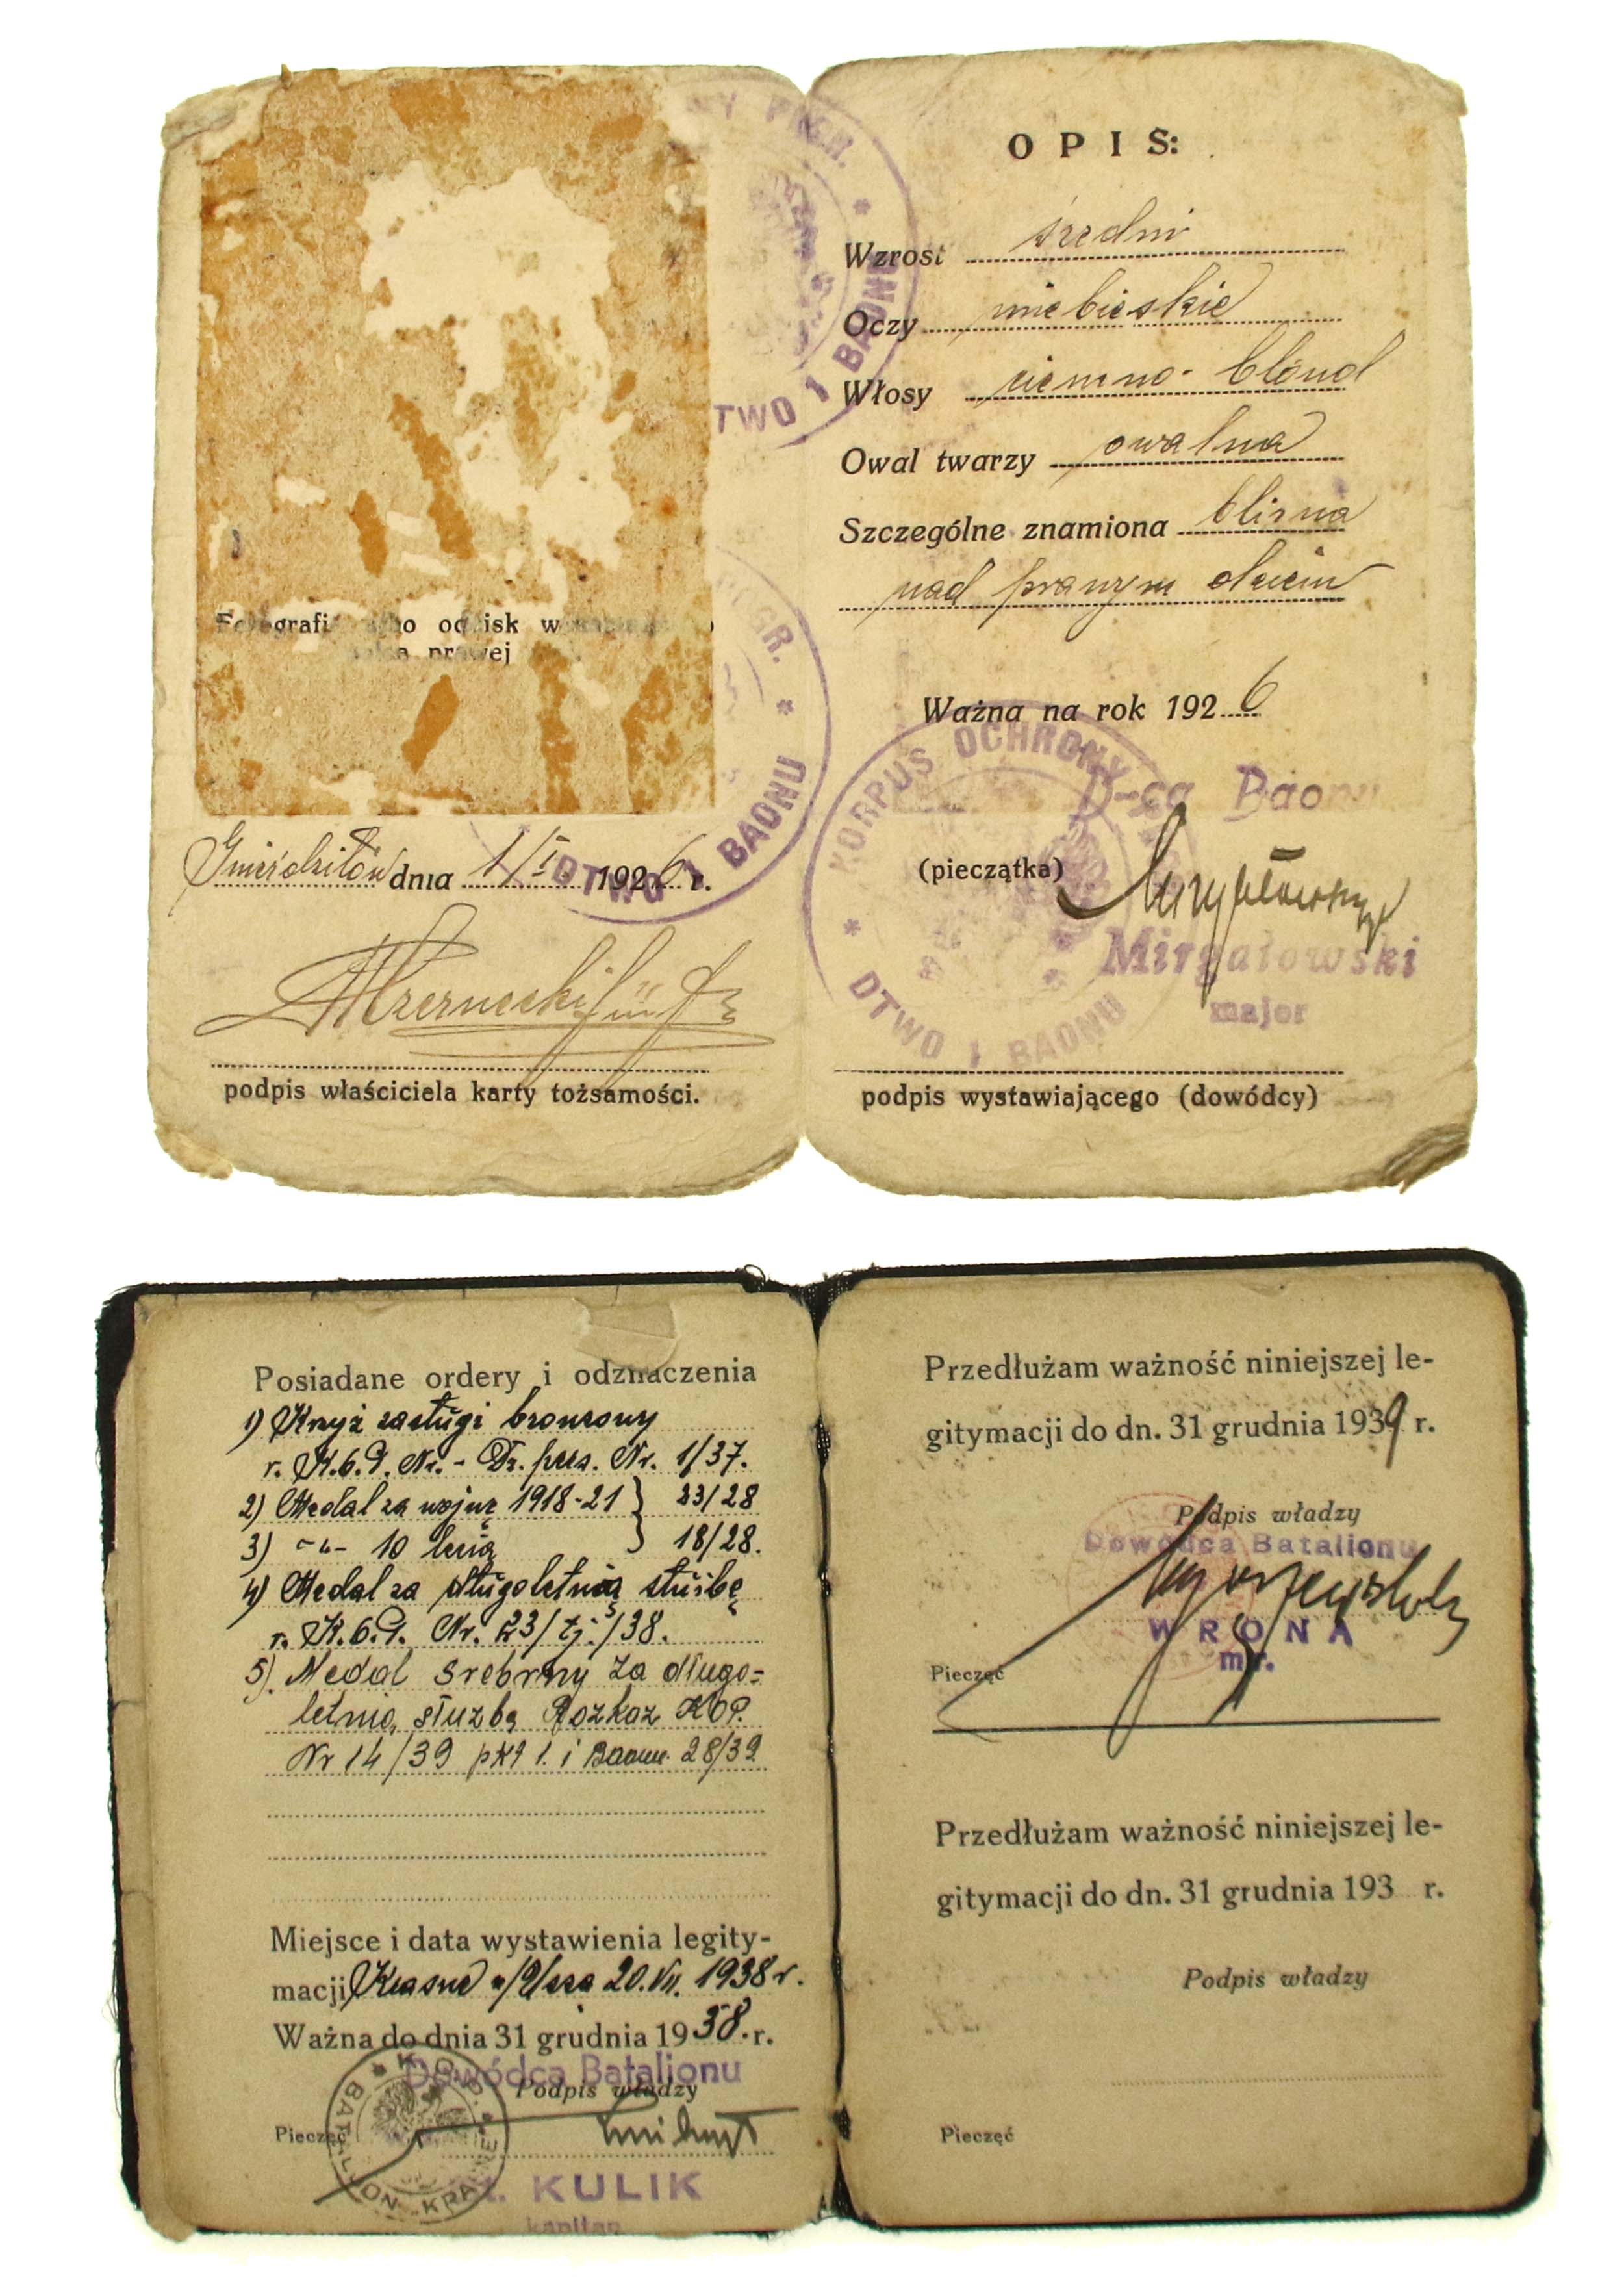 OPIS:
Wzrost średni
Oczy niebieskie
Włosy ciemno-blond
Owal twarzy owalna
Szczególne znamiona blizna
nad prawym okiem
Ważna na rok 1926
KORPUS OCHRONY
DTWO 1 BAONU
D-ca Baonu
(pieczątka)
Mirgałowski
major
podpis wystawiającego (dowódcy)
odcisk
prawej
TWO 1 BAONU
GR.
DTWO 1 BAONU
dnia 1/I 1926 r.
podpis właściciela karty tożsamości.
Posiadane ordery i odznaczenia
1) Krzyż zasługi bronzowy
r. K.O.P. Nr. - Dz. pers. Nr. 1/37.
2) Medal za wojnę 1918-21 } 23/28
3) -"- 10 lecia } 18/28.
4) Medal za długoletnią służbę
r. K.O.P. Nr. 23/tj./38.
5) Medal srebrny za długo=
letnią służbę Rozkaz KOP.
Nr 14/39 pkt 1. i Baonu 28/39
Miejsce i data wystawienia legity-
macji Krasne n/Uszą 20.VII. 1938 r.
Ważna do dnia 31 grudnia 1938. r.
Dowódca Batalionu
Podpis władzy
Pieczęć
K.O.P.
BATALION KRASNE
KULIK
kapitan
Przedłużam ważność niniejszej le-
gitymacji do dn. 31 grudnia 1939 r.
Podpis władzy
Dowódca Batalionu
WRONA
mjr.
Pieczęć
Przedłużam ważność niniejszej le-
gitymacji do dn. 31 grudnia 193 r.
Podpis władzy
Pieczęć